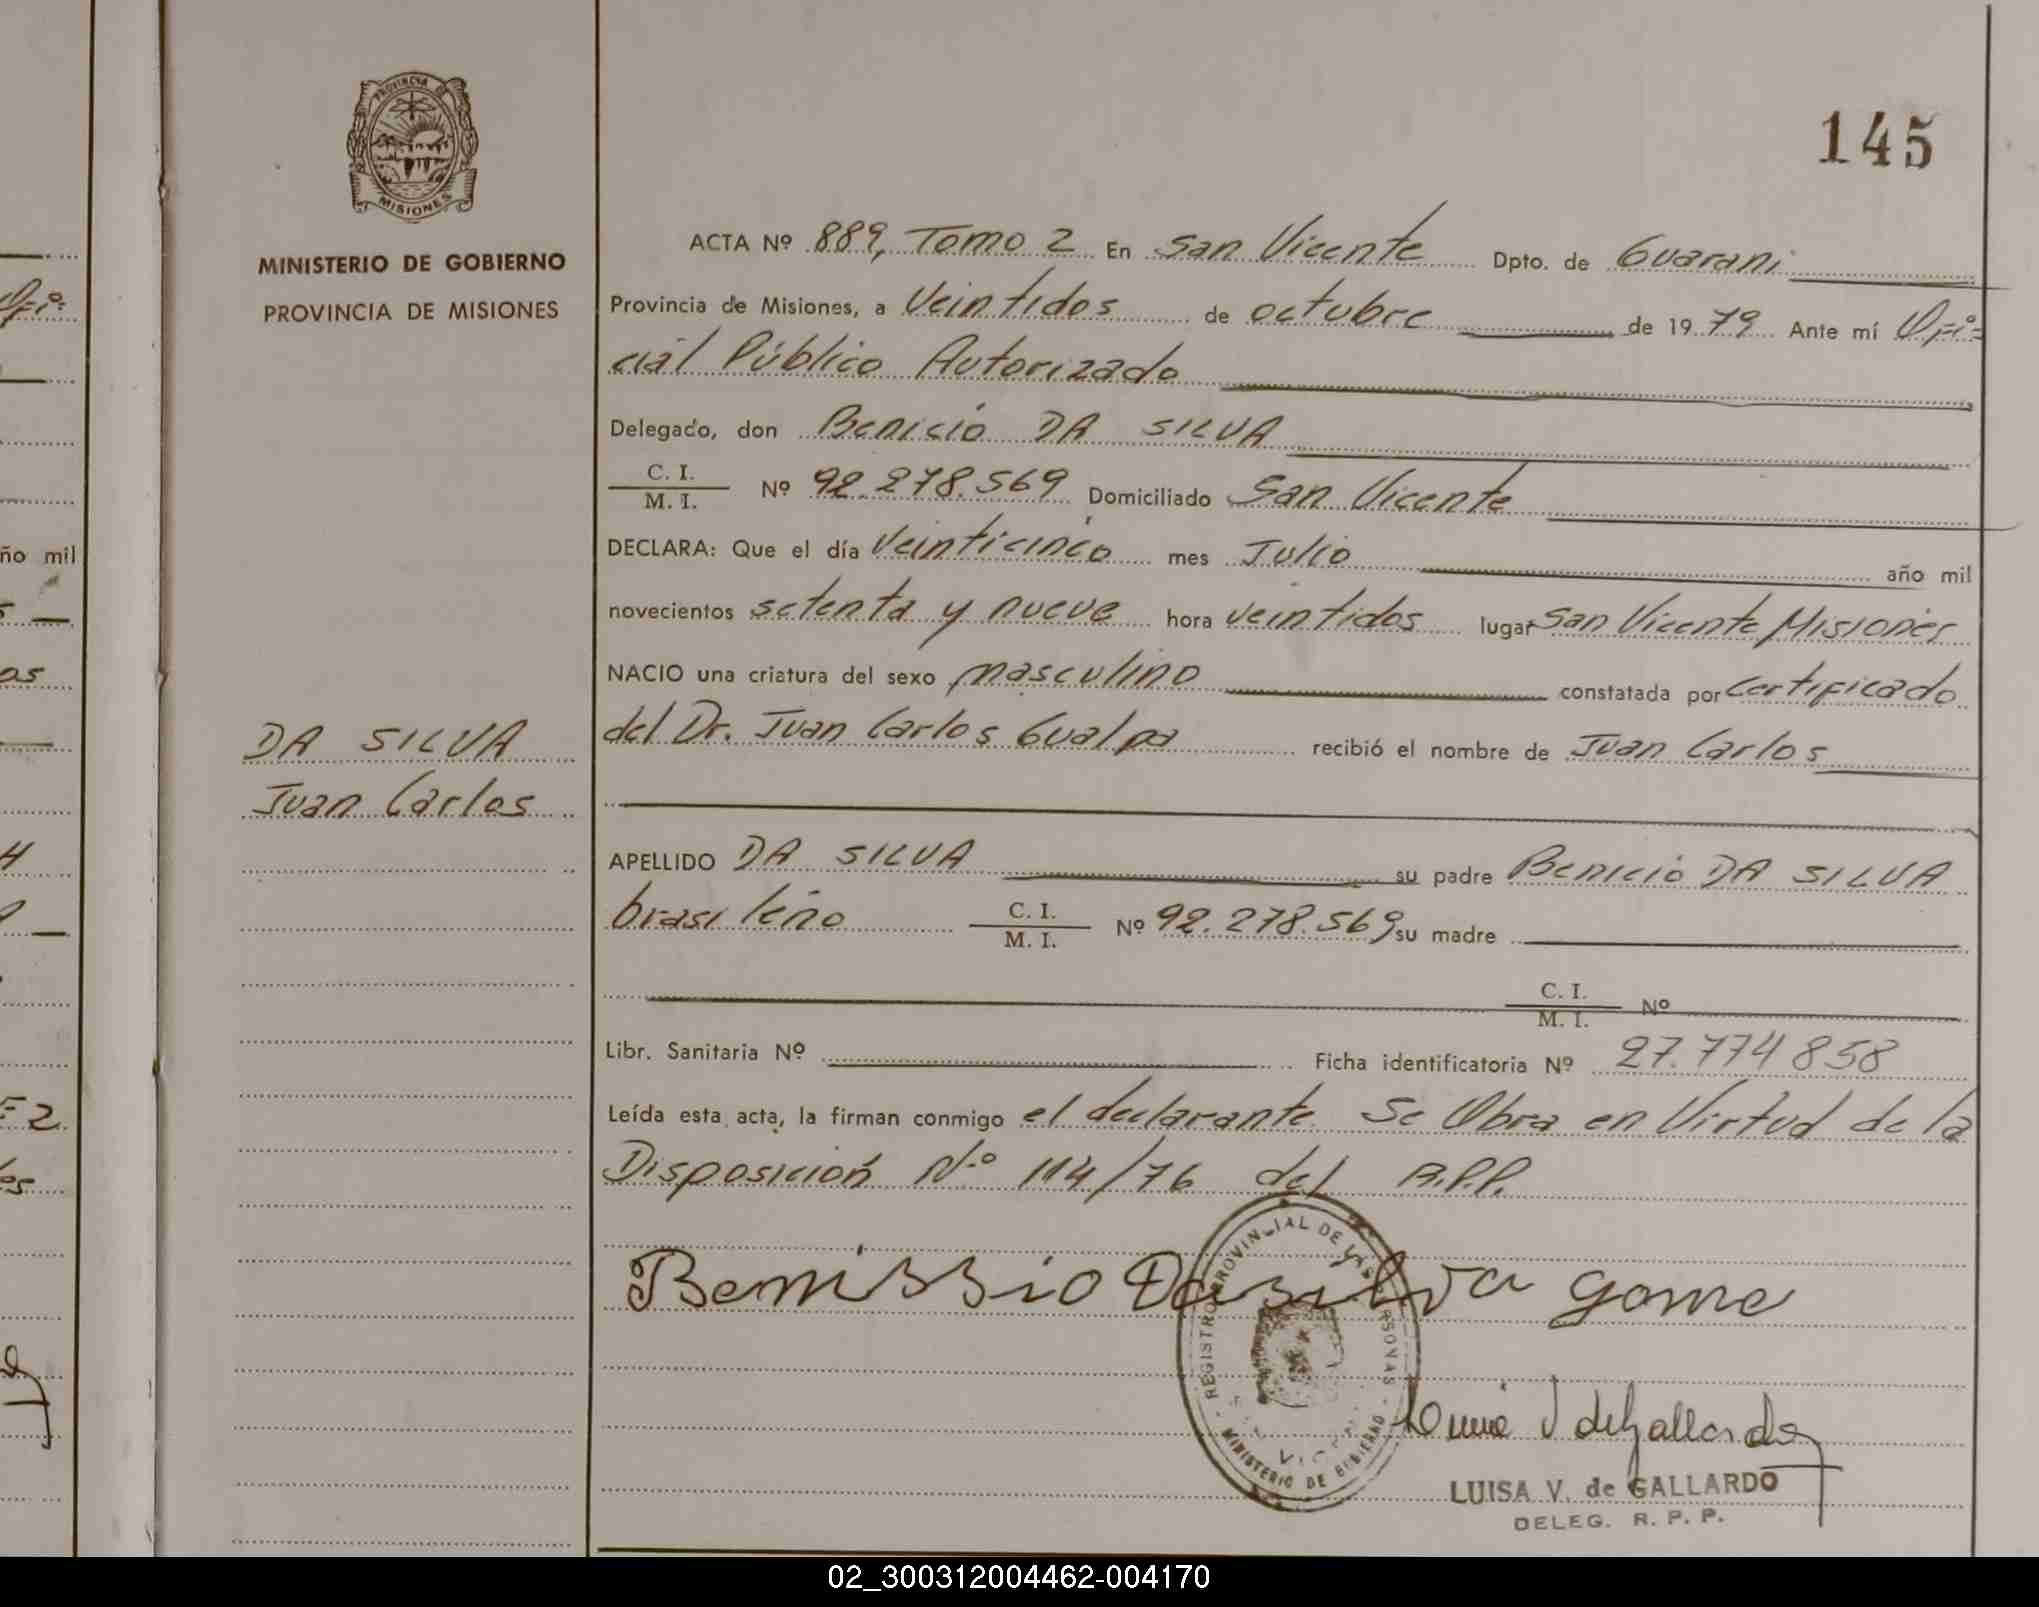 PROVINCIA DE
MISIONES
MINISTERIO DE GOBIERNO
PROVINCIA DE MISIONES
DA SILVA
Juan Carlos
145
ACTA Nº 889, Tomo 2 En San Vicente Dpto. de Guarani
Provincia de Misiones, a Veintidos de octubre de 1979 Ante mí Ofi=
cial Público Autorizado
Delegado, don Benicio DA SILVA
C. I.
M. I. Nº 92.278.569 Domiciliado San Vicente
DECLARA: Que el día Veinticinco mes Julio año mil
novecientos setenta y nueve hora veintidos lugar San Vicente Misiones
NACIO una criatura del sexo masculino constatada por Certificado
del Dr. Juan Carlos Gualpa recibió el nombre de Juan Carlos
APELLIDO DA SILVA su padre Benicio DA SILVA
brasileño C. I.
M. I. Nº 92.278.569 su madre
C. I.
M. I. Nº
Libr. Sanitaria Nº Ficha identificatoria Nº 27.774858
Leída esta acta, la firman conmigo el declarante. Se Obra en Virtud de la
Disposición Nº 114/76 del R.P.P.
Bemissio Da silva Gome
REGISTRO PROVINCIAL DE LAS PERSONAS
MINISTERIO DE GOBIERNO
LUISA V. de GALLARDO
DELEG. R. P. P.
ño mil
02_300312004462-004170